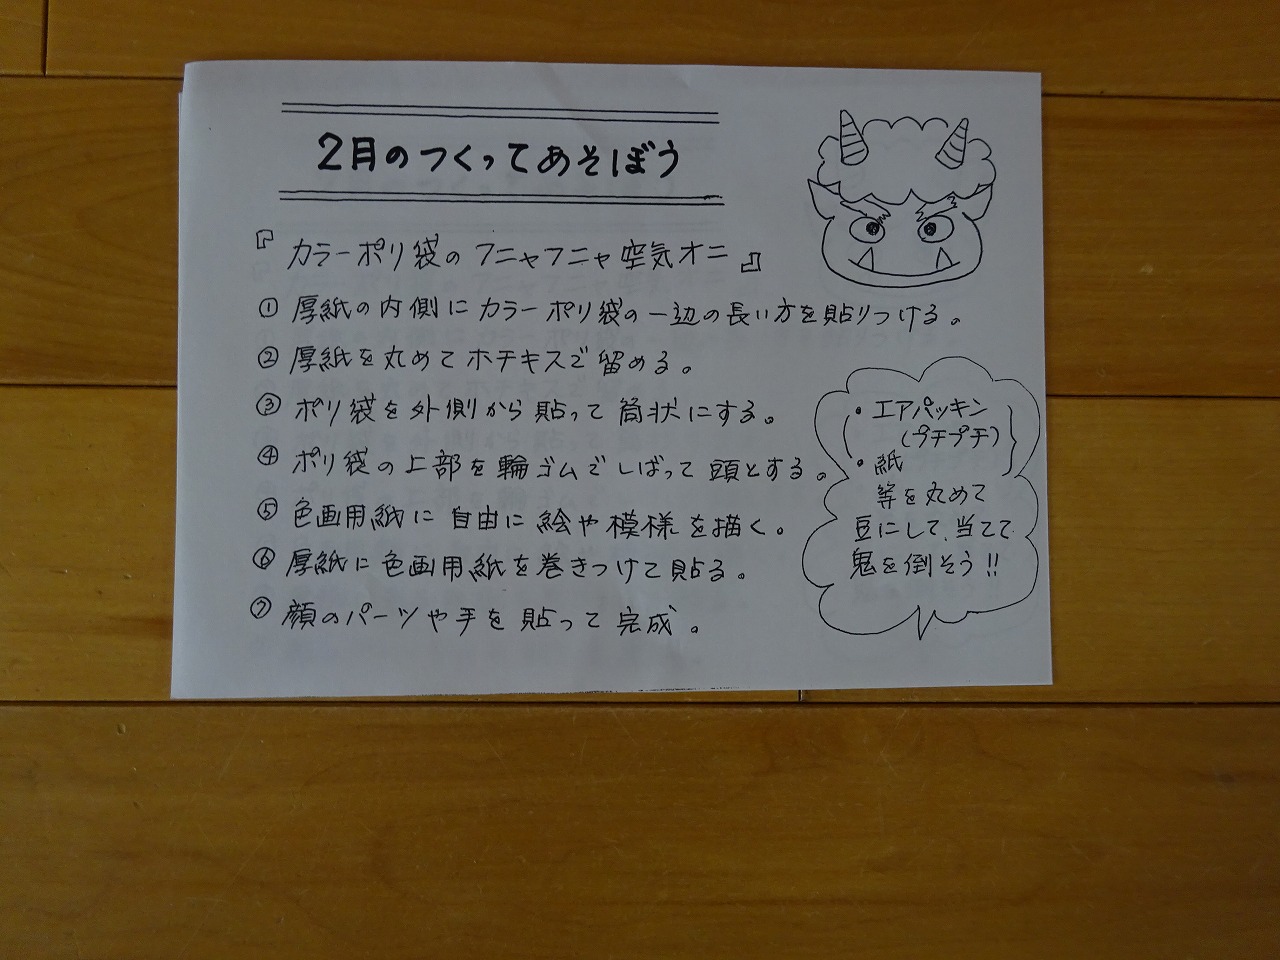 2月のつくってあそぼう
『カラーポリ袋のフニャフニャ空気オニ』
① 厚紙の内側にカラーポリ袋の一辺の長い方を貼りつける。
② 厚紙を丸めてホチキスで留める。
③ ポリ袋を外側から貼って筒状にする。
④ ポリ袋の上部を輪ゴムでしばって頭とする。
⑤ 色画用紙に自由に絵や模様を描く。
⑥ 厚紙に色画用紙を巻きつけて貼る。
⑦ 顔のパーツや手を貼って完成。
・エアパッキン
(プチプチ)
・紙
等を丸めて
豆にして、当てて
鬼を倒そう!!